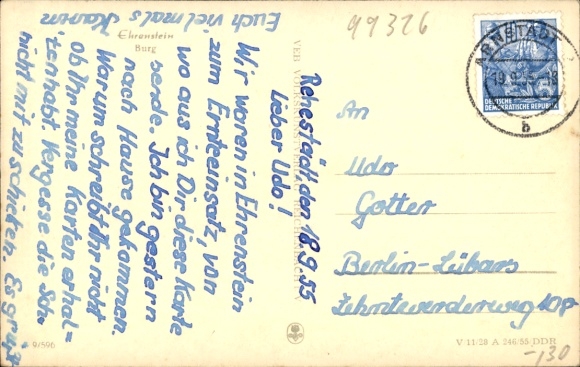 99326
Ehrenstein
Burg
ARNSTADT
19.9.55-18
b
DEUTSCHE
DEMOKRATISCHE REPUBLIK
Rehestädt den 18.9.55
Lieber Udo!
Wir waren in Ehrenstein
zum Ernteeinsatz, von
wo aus ich Dir diese Karte
sende. Ich bin gestern
nach Hause gekommen.
Warum schreibt Ihr nicht
ob Ihr meine Karten erhal=
ten habt. Vergesse die Sch-
nicht mit zu schicken. Es grüßt
Euch vielmals Karin
An
Udo
Gotter
Berlin-Lübars
Zehntwerderweg 10p
VEB
9/596
V 11/28 A 246/55 DDR
-130